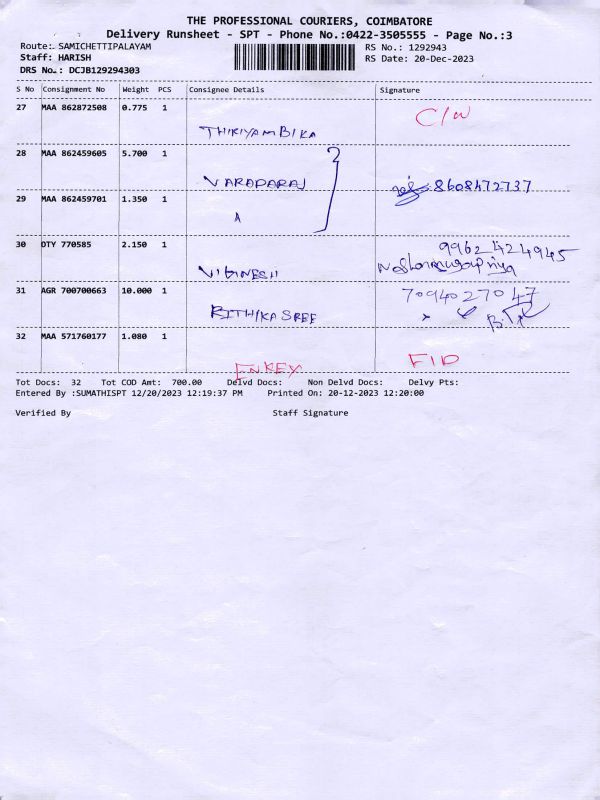 THE PROFESSIONAL COURIERS, COIMBATORE
Delivery Runsheet - SPT - Phone No.:0422-3505555 - Page No.:3
Route: SAMICHETTIPALAYAM RS No.: 1292943
Staff: HARISH RS Date: 20-Dec-2023
DRS No.: DCJB129294303
S No Consignment No Weight PCS Consignee Details Signature
27 MAA 862872508 0.775 1 C/W
THIRIYAMBIKA
28 MAA 862459605 5.700 1
VARADARAJ 8608472737
29 MAA 862459701 1.350 1
30 DTY 770585 2.150 1 9962424945
VIGINESH
31 AGR 700700663 10.000 1 7094027047
RITHIKA SREE
32 MAA 571760177 1.080 1 FID
ENKEY
Tot Docs: 32 Tot COD Amt: 700.00 Delvd Docs: Non Delvd Docs: Delvy Pts:
Entered By :SUMATHISPT 12/20/2023 12:19:37 PM Printed On: 20-12-2023 12:20:00
Verified By Staff Signature